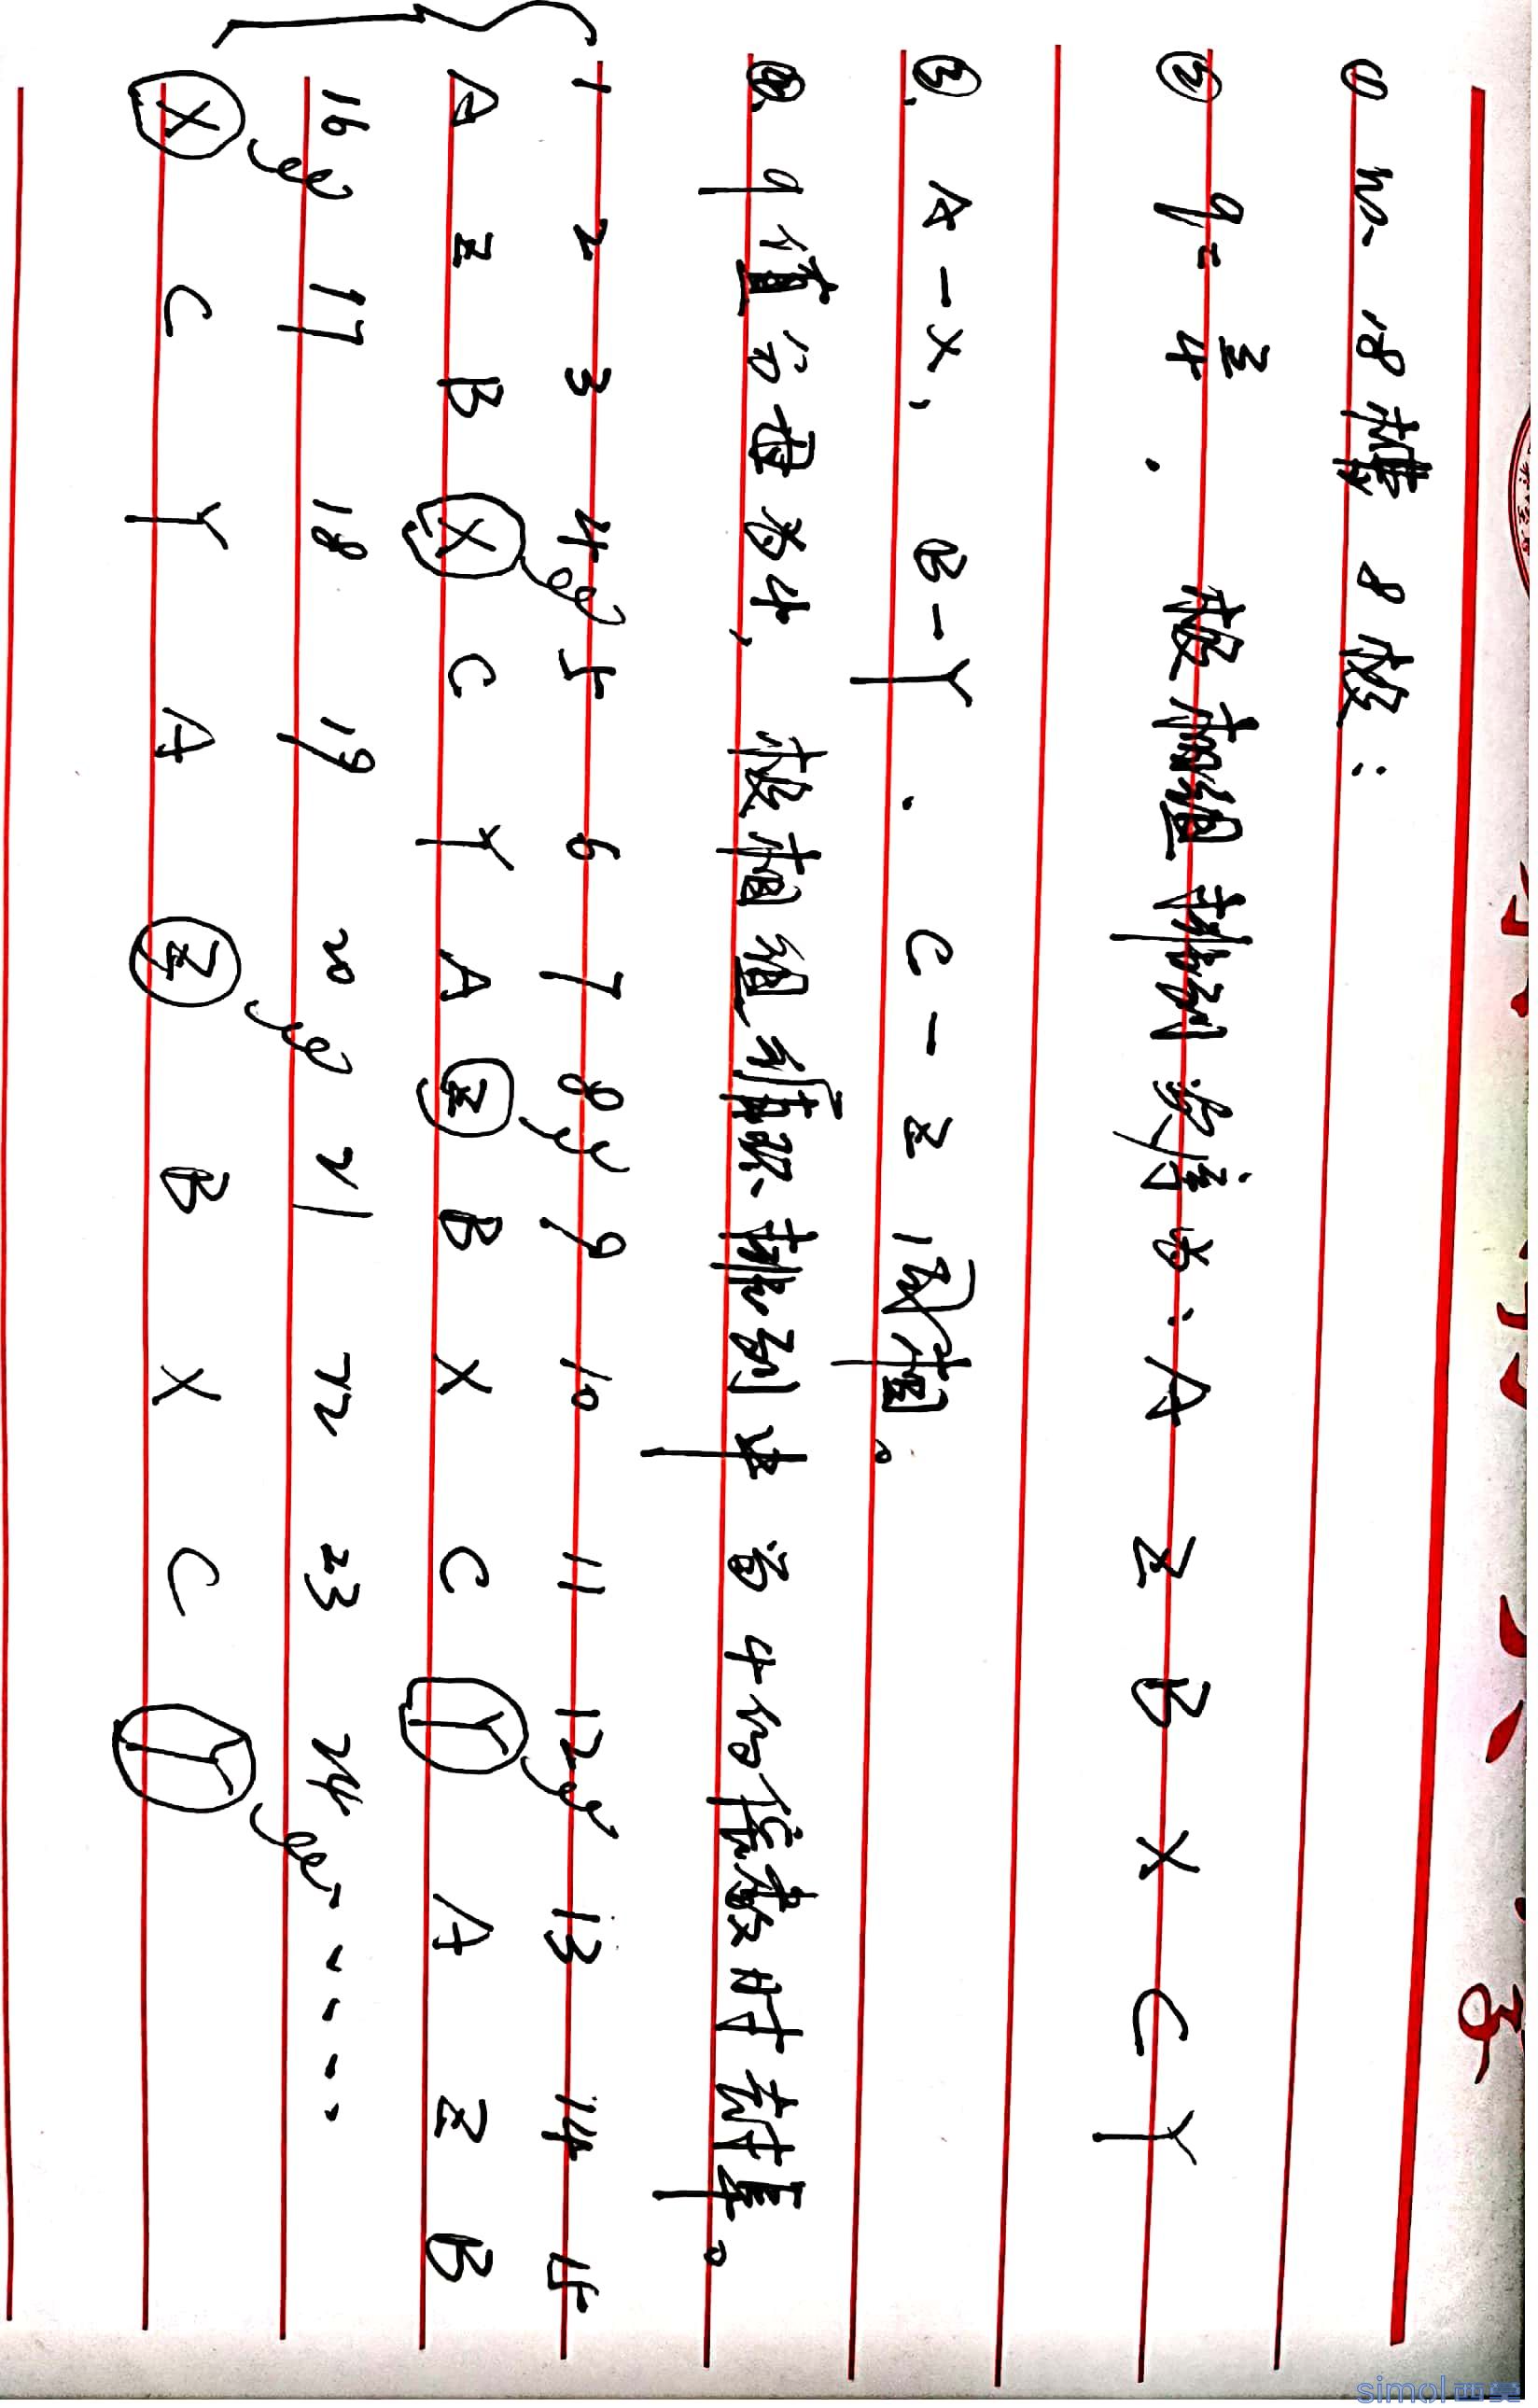 ① 18槽 8极:
② q=3/4 . 极相组排列次序为:A Z B X C Y
③、A-X, B-Y . C-Z 相。
④、q值分母为4, 极相组循环排列中为4的倍数时去掉。
1 2 3 4 5 6 7 8 9 10 11 12 13 14 15
A Z B X C Y A Z B X C Y A Z B
16 17 18 19 20 21 22 23 24 ......
X C Y A Z B X C Y
simol西曼